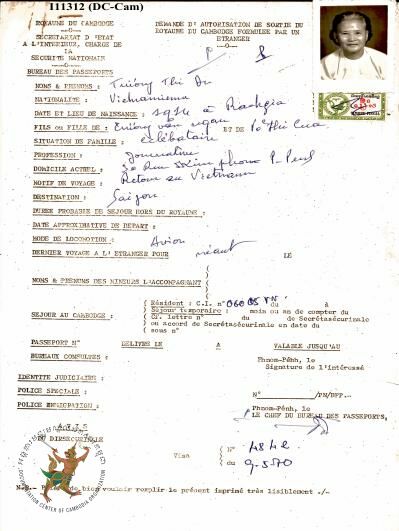 I11312 (DC-Cam)
ROYAUME DU CAMBODGE
SECRETARIAT D'ETAT
A L'INTERIEUR, CHARGE DE
LA
SECURITE NATIONALE
BUREAU DES PASSEPORTS
DEMANDE D'AUTORISATION DE SORTIE DU
ROYAUME DU CAMBODGE FORMULEE PAR UN
ETRANGER
NOMS & PRENOMS : Trương Thi
NATIONALITE : Vietnamienne
DATE ET LIEU DE NAISSANCE : 1914 à Rachgia
FILS ou FILLE DE : Trương văn ngan ET DE Lê Thi Cua
SITUATION DE FAMILLE : célibataire
PROFESSION : Journalière
DOMICILE ACTUEL : Rue P. Penh
MOTIF DE VOYAGE : Retour au Vietnam
DESTINATION : Saigon
DUREE PROBABLE DE SEJOUR HORS DU ROYAUME :
DATE APPROXIMATIVE DE DEPART :
MODE DE LOCOMOTION : Avion
DERNIER VOYAGE A L'ETRANGER POUR néant LE
NOMS & PRENOMS DES MINEURS L'ACCOMPAGNANT
SEJOUR AU CAMBODGE :
Résident : C.I. n° du à
Séjour temporaire : mois ou an de compter du
Cf. lettre n° du de Secrétasécurinale
ou accord de Secrétasécurinale en date du
sous n°
PASSEPORT N° DELIVRE LE A VALABLE JUSQU'AU
BUREAUX CONSULTES :
Phnom-Pénh, le
Signature de l'intéressé
IDENTITE JUDICIAIRE :
POLICE SPECIALE :
POLICE IMMIGRATION :
N° /PN/BPP.-
Phnom-Pénh, le
LE CHEF DU BUREAU DES PASSEPORTS,
AVIS
DU DIRSECURITE
Visa
N° 4842
du 9-5-70
DOCUMENTATION CENTER OF CAMBODIA ORGANIZATION
N.B.- Prière de bien vouloir remplir le présent imprimé très lisiblement ./-